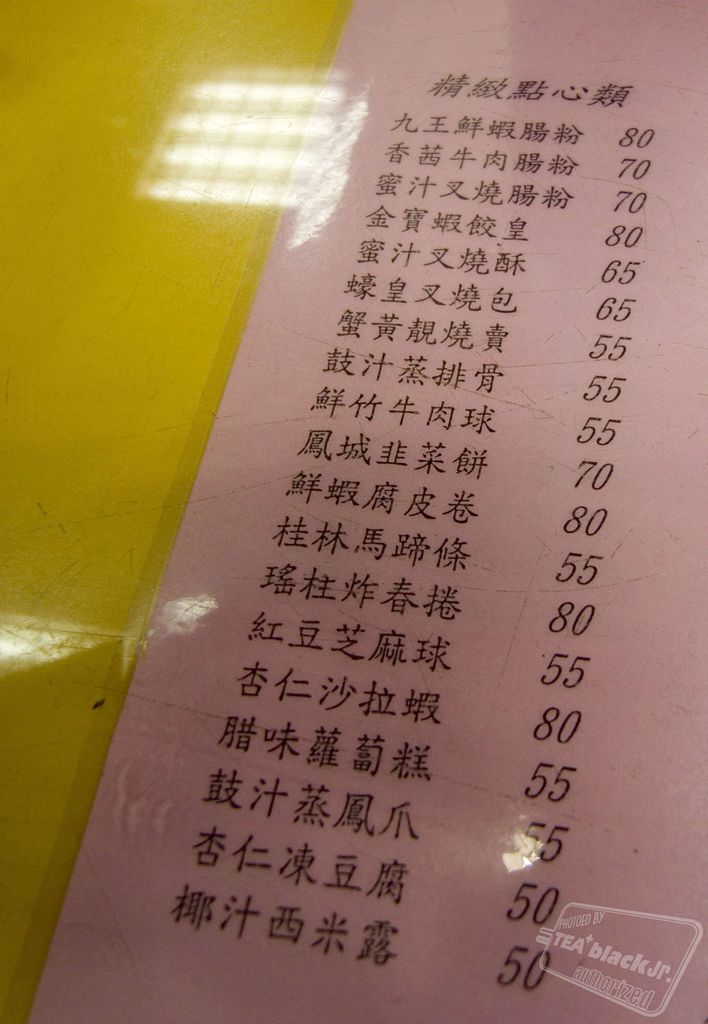 精緻點心類
九王鮮蝦腸粉 80
香茜牛肉腸粉 70
蜜汁叉燒腸粉 70
金寶蝦餃皇 80
蜜汁叉燒酥 65
蠔皇叉燒包 65
蟹黃靚燒賣 55
鼓汁蒸排骨 55
鮮竹牛肉球 55
鳳城韭菜餅 70
鮮蝦腐皮卷 80
桂林馬蹄條 55
瑤柱炸春捲 80
紅豆芝麻球 55
杏仁沙拉蝦 80
腊味蘿蔔糕 55
鼓汁蒸鳳爪 55
杏仁凍豆腐 50
椰汁西米露 50
PHOTOED BY
TEA+blackJr.
authorized